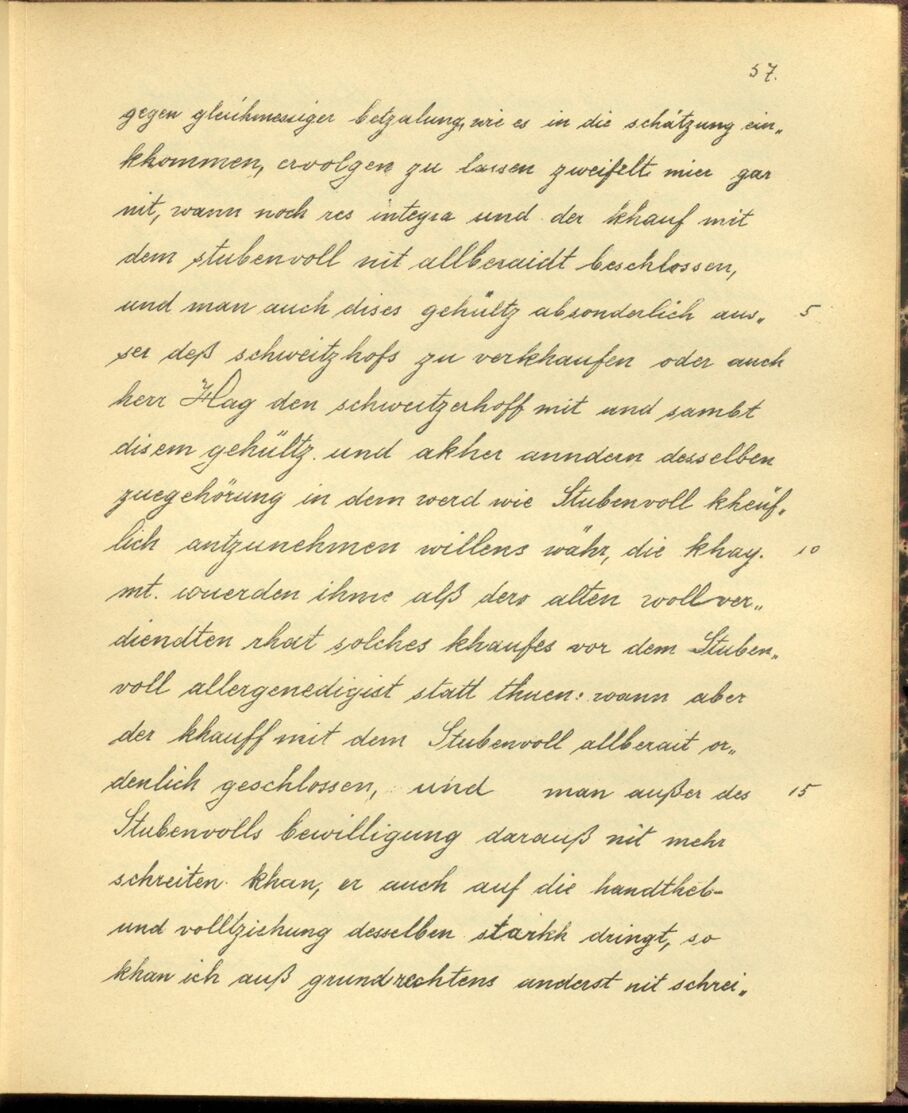 57.
gegen gleichmessiger betzalung, wie es in die schätzung ein„
khommen, ervolgen zu lassen zweifelt mier gar
nit, wann noch res integra und der khauf mit
dem stubenvoll nit allberaidt beschlossen,
und man auch dises gehültz absonderlich aus„ 5
ser deß schweitzhofs zu verkhaufen oder auch
herr Hag den schweitzerhoff mit und sambt
disem gehültz und akher anndern desselben
zuegehörung in dem werd wie Stubenvoll kheuf„
lich antzunehmen willens währ, die khay. 10
mt. wuerden ihme alß dero alten wollver„
diendten rhat solches khaufes vor dem Stuben„
voll allergenedigist statt thuen: wann aber
der khauff mit dem Stubenvoll allberait or„
denlich geschlossen, und man außer des 15
Stubenvolls bewilligung darauß nit mehr
schreiten khan, er auch auf die handtheb-
und volltziehung desselben starkh dringt, so
khan ich auß grundrechtens anderst nit schrei„